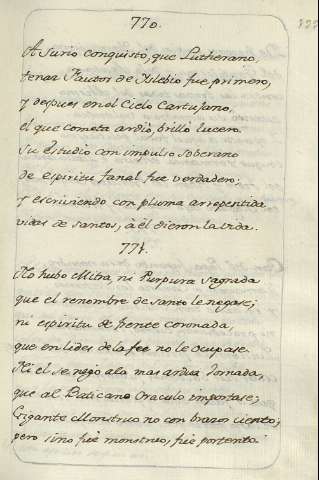 770.
A Surio conquisto, que Lutherano,
tenaz Fautor de Islebio fue primero,
y despues en el Cielo Cartusano,
el que cometa ardio, brillò lucero.
Su Estudio con impulso soberano
de espiritu fanal fue verdadero;
y escriviendo con pluma arrepentida
vidas de santos, à èl dieron la vida.
771.
No hubo Mitra, ni Purpura sagrada
que el renombre de santo le negase;
ni espiritu de frente coronada,
que en lides de la feè no le ocupase.
Ni èl se nego ala mas ardua Jornada,
que al Baticano Oraculo importase;
Gigante Monstruo no con brazos ciento,
pero sino fuè monstruo, fuè portento.